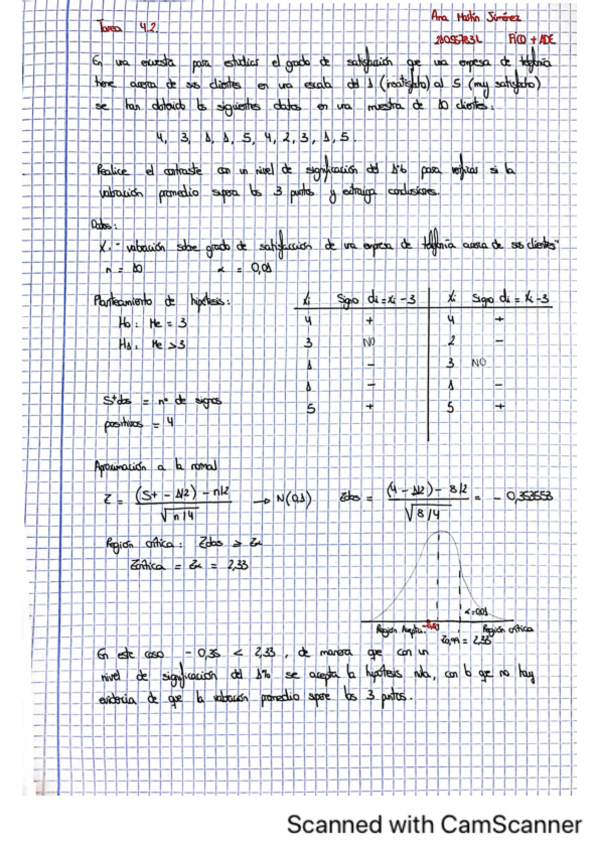 Tarea 4.2.
Ana Martín Jiménez
FICO + ADE
En una encuesta para estudiar el grado de satisfacción que una empresa de telefonía
tiene acerca de sus clientes en una escala del 1 (insatisfecho) al 5 (muy satisfecho)
se han obtenido los siguientes datos en una muestra de 10 clientes:
4, 3, 1, 1, 5, 4, 2, 3, 1, 5.
Realice el contraste con un nivel de significación del 1% para verificar si la
valoración promedio supera los 3 puntos y extraiga conclusiones.
Datos:
X: "valoración sobre grado de satisfacción de una empresa de telefonía acerca de sus clientes"
n = 10 α = 0,01
Planteamiento de hipótesis:
H0: Me = 3
H1: Me > 3
S+obs = nº de signos
positivos = 4
Xi Signo di = Xi - 3 Xi Signo di = Xi - 3
4 + 4 +
3 NO 2 -
1 - 3 NO
1 - 1 -
5 + 5 +
Aproximación a la normal
Z = (S+ - 1/2) - n/2 / √n/4 → N(0,1) Zobs = (4 - 1/2) - 8/2 / √8/4 = - 0,353553
Región crítica: Zobs ≥ Zα
Zcrítica = Zα = 2,33
α = 0,01
Región Acepta. Región crítica
Z0,99 = 2,33
En este caso - 0,35 < 2,33, de manera que con un
nivel de significación del 1% se acepta la hipótesis nula, con lo que no hay
evidencia de que la valoración promedio supere los 3 puntos.
Scanned with CamScanner